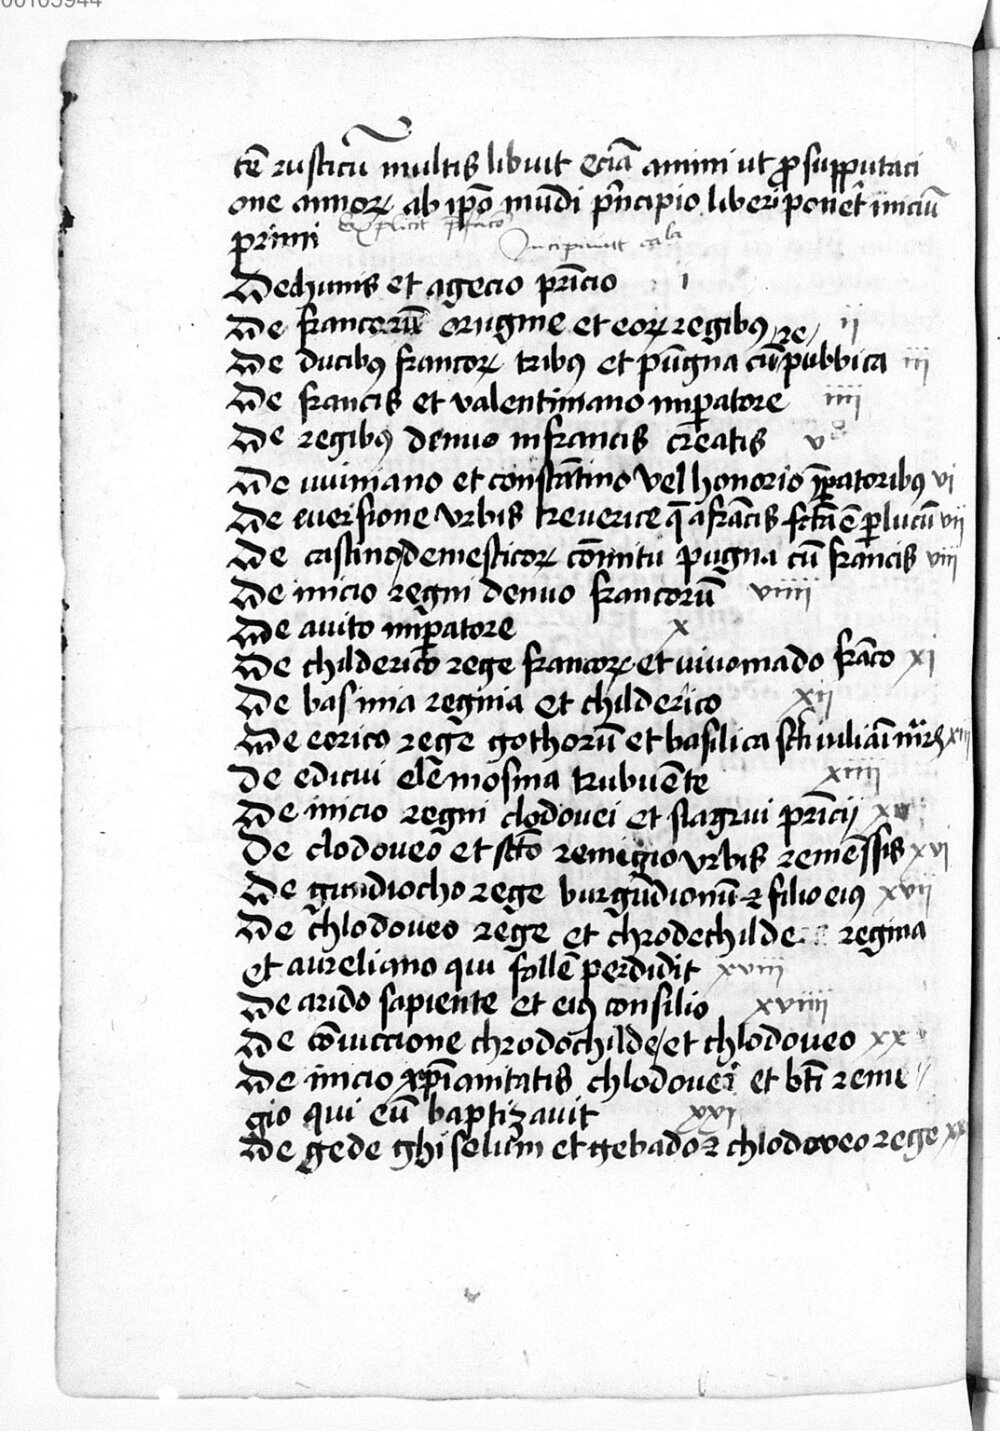 00105944
tē rusticū multis libuit eciā animi ut ꝓ supputaci
one annoꝝ ab ip̄o mūdi p̄ncipio liber ponet᷑ iniciū
primi Explicit p̄facō Incipiunt
De chunis et agecio p̄ricio i
De francorū origine et eoꝝ regibꝯ ii
re
De ducibꝯ francoꝝ tribꝯ et pūgna cū pubbica iii
De francis et valentiniano imꝑatore iiii
De regibꝯ denuo in francis creatis v
De iuuiniano et constātino vel honorio īꝑatoribꝯ vi
De euersione vrbis treuerice q̄ a frācis fctā ē ꝑ luciū vii
De castino demesticoꝝ cōmitu pugna cū francis viii
De inicio regni denuo francorū viiii
De auito imꝑatore x
De childerico rege francoꝝ et uiuomado frāco xi
De basinia regina et childerico xii
De eorico rege gothorū et basilica scti iuliāi
De edicui elēmosina tribuēte xiiii
De inicio regni clodouei et siagrui p̄ricii xv
De clodoueo et sctō remigio vrbis remēssis xvi
De gundiocho rege burgūdionū ⁊ filio eiꝯ xvii
De chlodoueo rege et chrodechilde regina
et aureliano qui follē perdidit xviii
De arido sapiente et eiꝯ consilio xviiii
De cōuiccione chrodochilde et chlodoueo xx
De inicio xp̄ianitatis chlodouei et bt̄i reme
gio qui eū baptizauit xxi
De gede ghiselum et gebado ⁊ chlodoveo rege